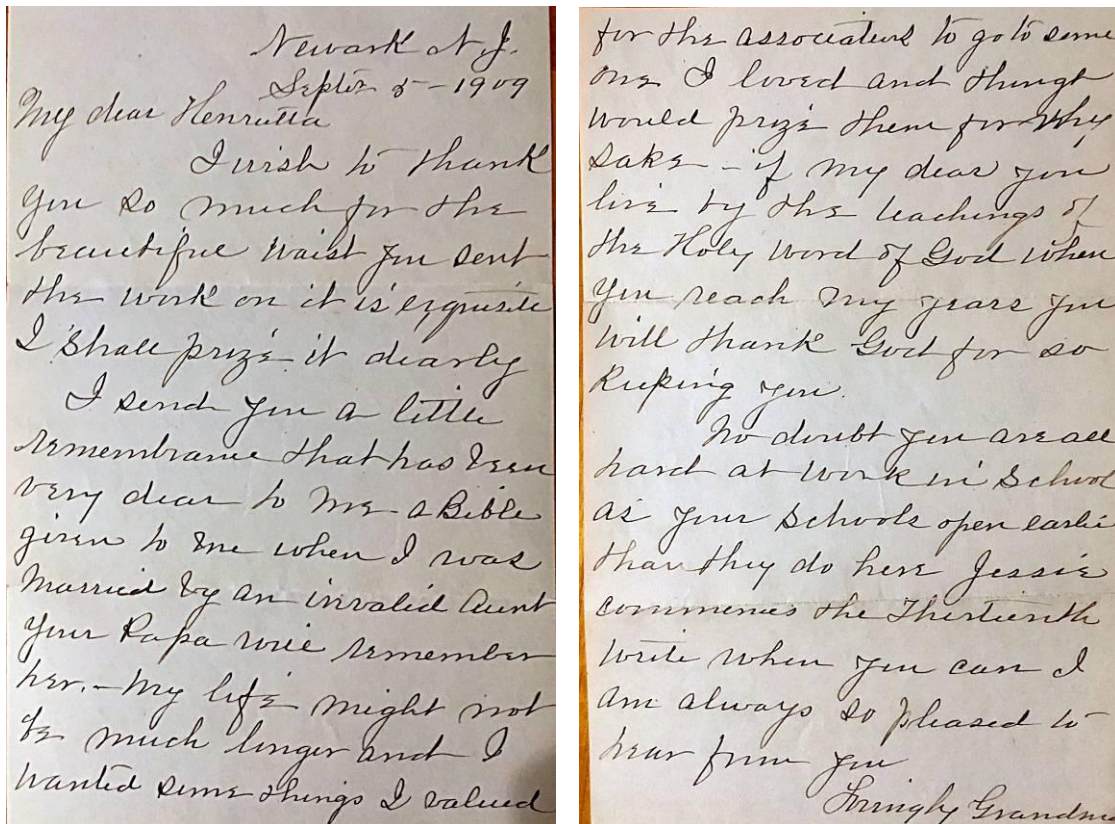 Newark N.J.
Septbr 5 - 1909
My dear Henrietta
I wish to thank
you so much for the
beautiful waist you sent
the work on it is exquisite
I shall prize it dearly
I send you a little
remembrance that has been
very dear to me - a Bible
given to me when I was
Married by an invalid Aunt
your Papa will remember
her. - My life might not
be much longer and I
wanted some things I valued
for the associations to go to some
one I loved and thought
would prize them for
sake - if my dear you
live by the teachings of
the Holy word of God when
you reach my years you
will thank God for so
keeping you.
No doubt you are all
hard at work in School
as your Schools open earlie
than they do here Jessie
commences the Thirteenth
write when you can I
am always so pleased to
hear from you
Lovingly Grandma